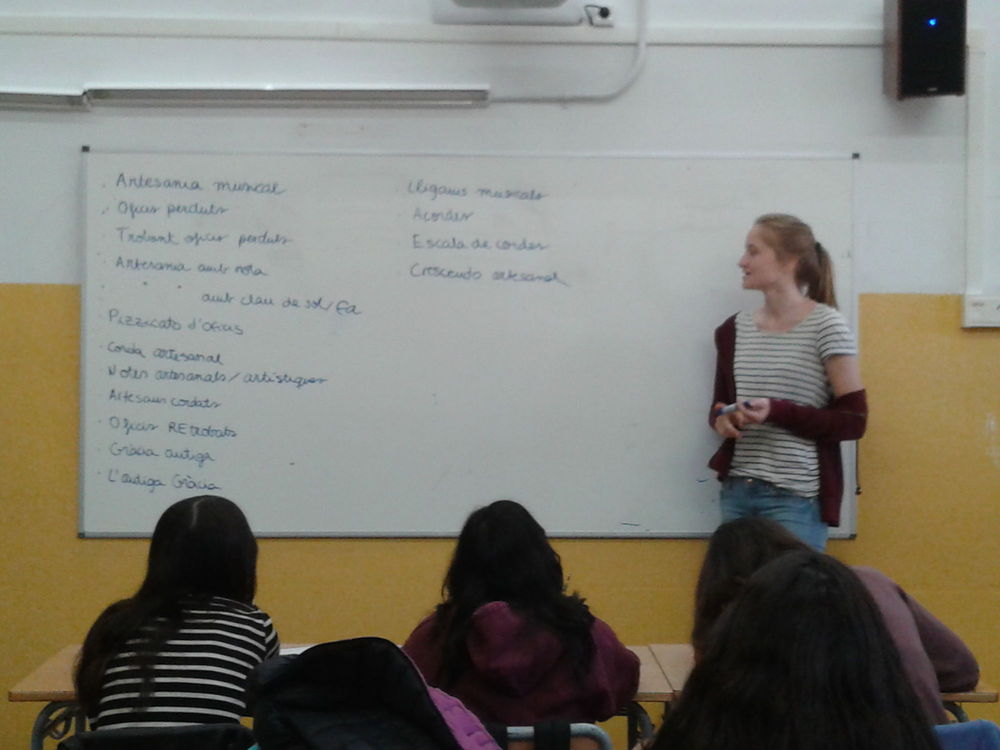 Artesania musical
Oficis perduts
Trobant oficis perduts
Artesania amb nota
" " amb clau de sol/fa
Pizzicato d'oficis
Corda artesanal
Notes artesanals/artístiques
Artesans cordats
Oficis REtrobats
Gràcia antiga
L'antiga Gràcia
Lligams musicals
Acordes
Escala de cordes
Crescendo artesanal